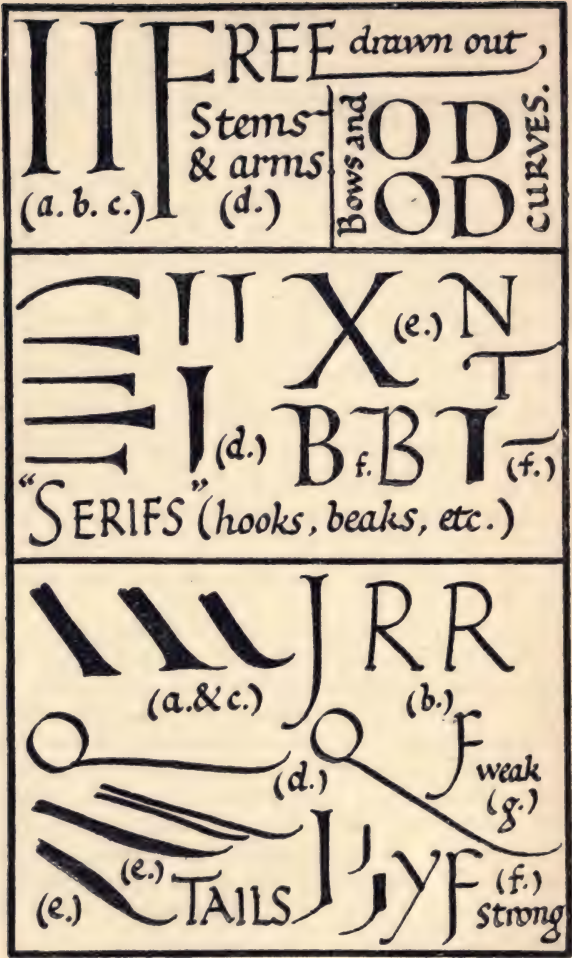 I I FREE drawn out,
Stems
& arms
(a. b. c.) (d.)
Bows and
O D
O D
CURVES.
I I
X (e.) N
T
I (d.) B f. B I (f.)
"SERIFS" (hooks, beaks, etc.)
J R R
(a. & c.) (b.)
Q (d.) Q F
weak
(g.)
(e.)
(e.) TAILS J J J y F (f.)
strong